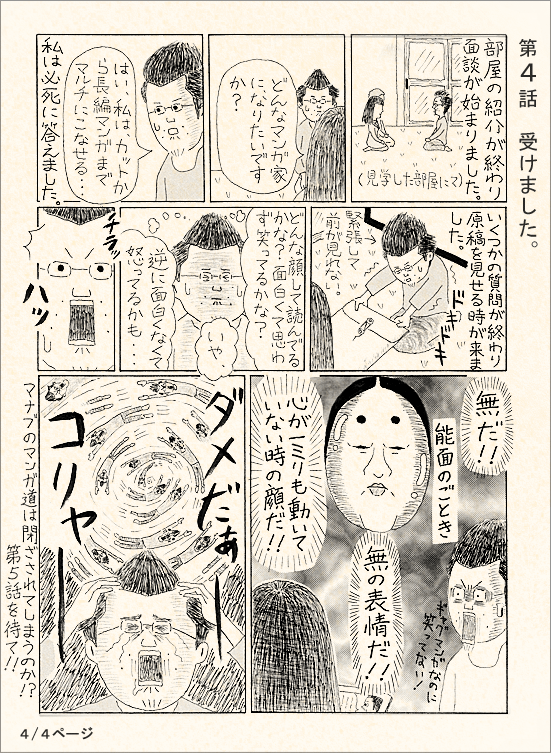 第4話 受けました。
部屋の紹介が終わり
面談が始まりました。
(見学した部屋にて)
どんなマンガ家
になりたいです
か?
はい、私は、カットか
ら長編マンガまで
マルチにこなせる・・・
私は必死に答えました。
いくつかの質問が終わり
原稿を見せる時が来ま
した。
ドキ
ドキ
緊張して
前が見れない。
どんな顔して読んでる
かな?面白くて思わ
ず笑ってるかな?
いや、
逆に面白くなくて
怒ってるかも・・・
チラッ
ハッ
無だ!!
能面のごとき
無の表情だ!!
心が一ミリも動いて
いない時の顔だ!!
ギャグマンガなのに
笑ってない!
ダメだぁ
コリャー
マナブのマンガ道は閉ざされてしまうのか!?
第5話を待て!!
4/4ページ